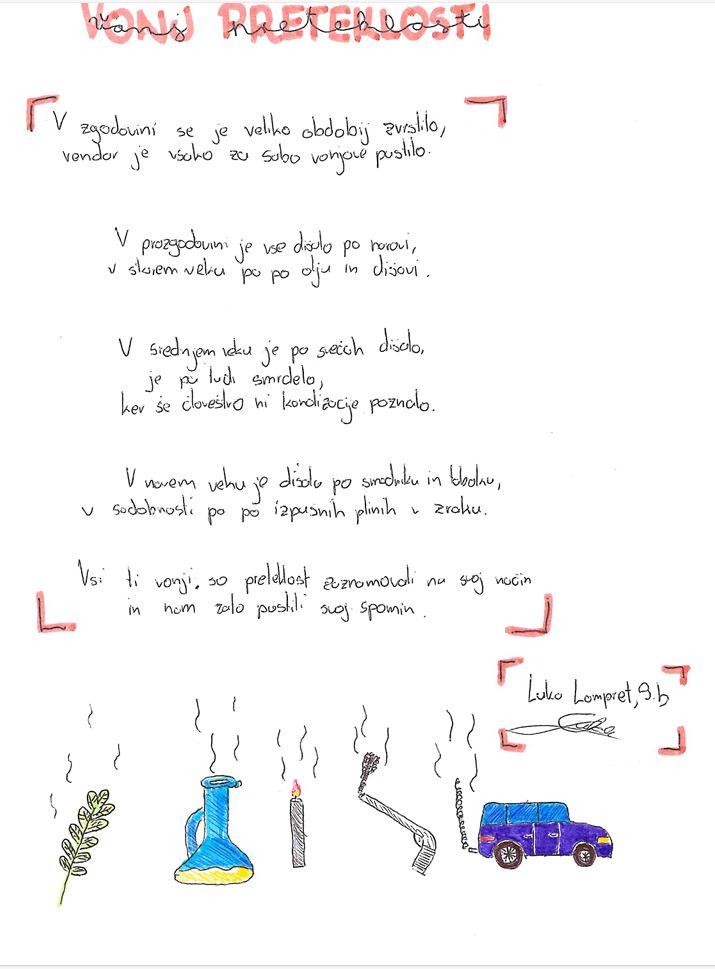 VONJ PRETEKLOSTI
V zgodovini se je veliko obdobij zvrstilo,
vendar je vsako za sabo vonjave pustilo.
V prazgodovini je vse dišalo po naravi,
v starem veku pa po olju in dišavi.
V srednjem veku je po svečah dišalo,
je pa tudi smrdelo,
ker še človeštvo ni kanalizacije poznalo.
V novem veku je dišalo po smodniku in tobaku,
v sodobnosti pa po izpušnih plinih v zraku.
Vsi ti vonji, so preteklost zaznamovali na svoj način
in nam zato pustili svoj spomin.
Luka Lampret, 9.b